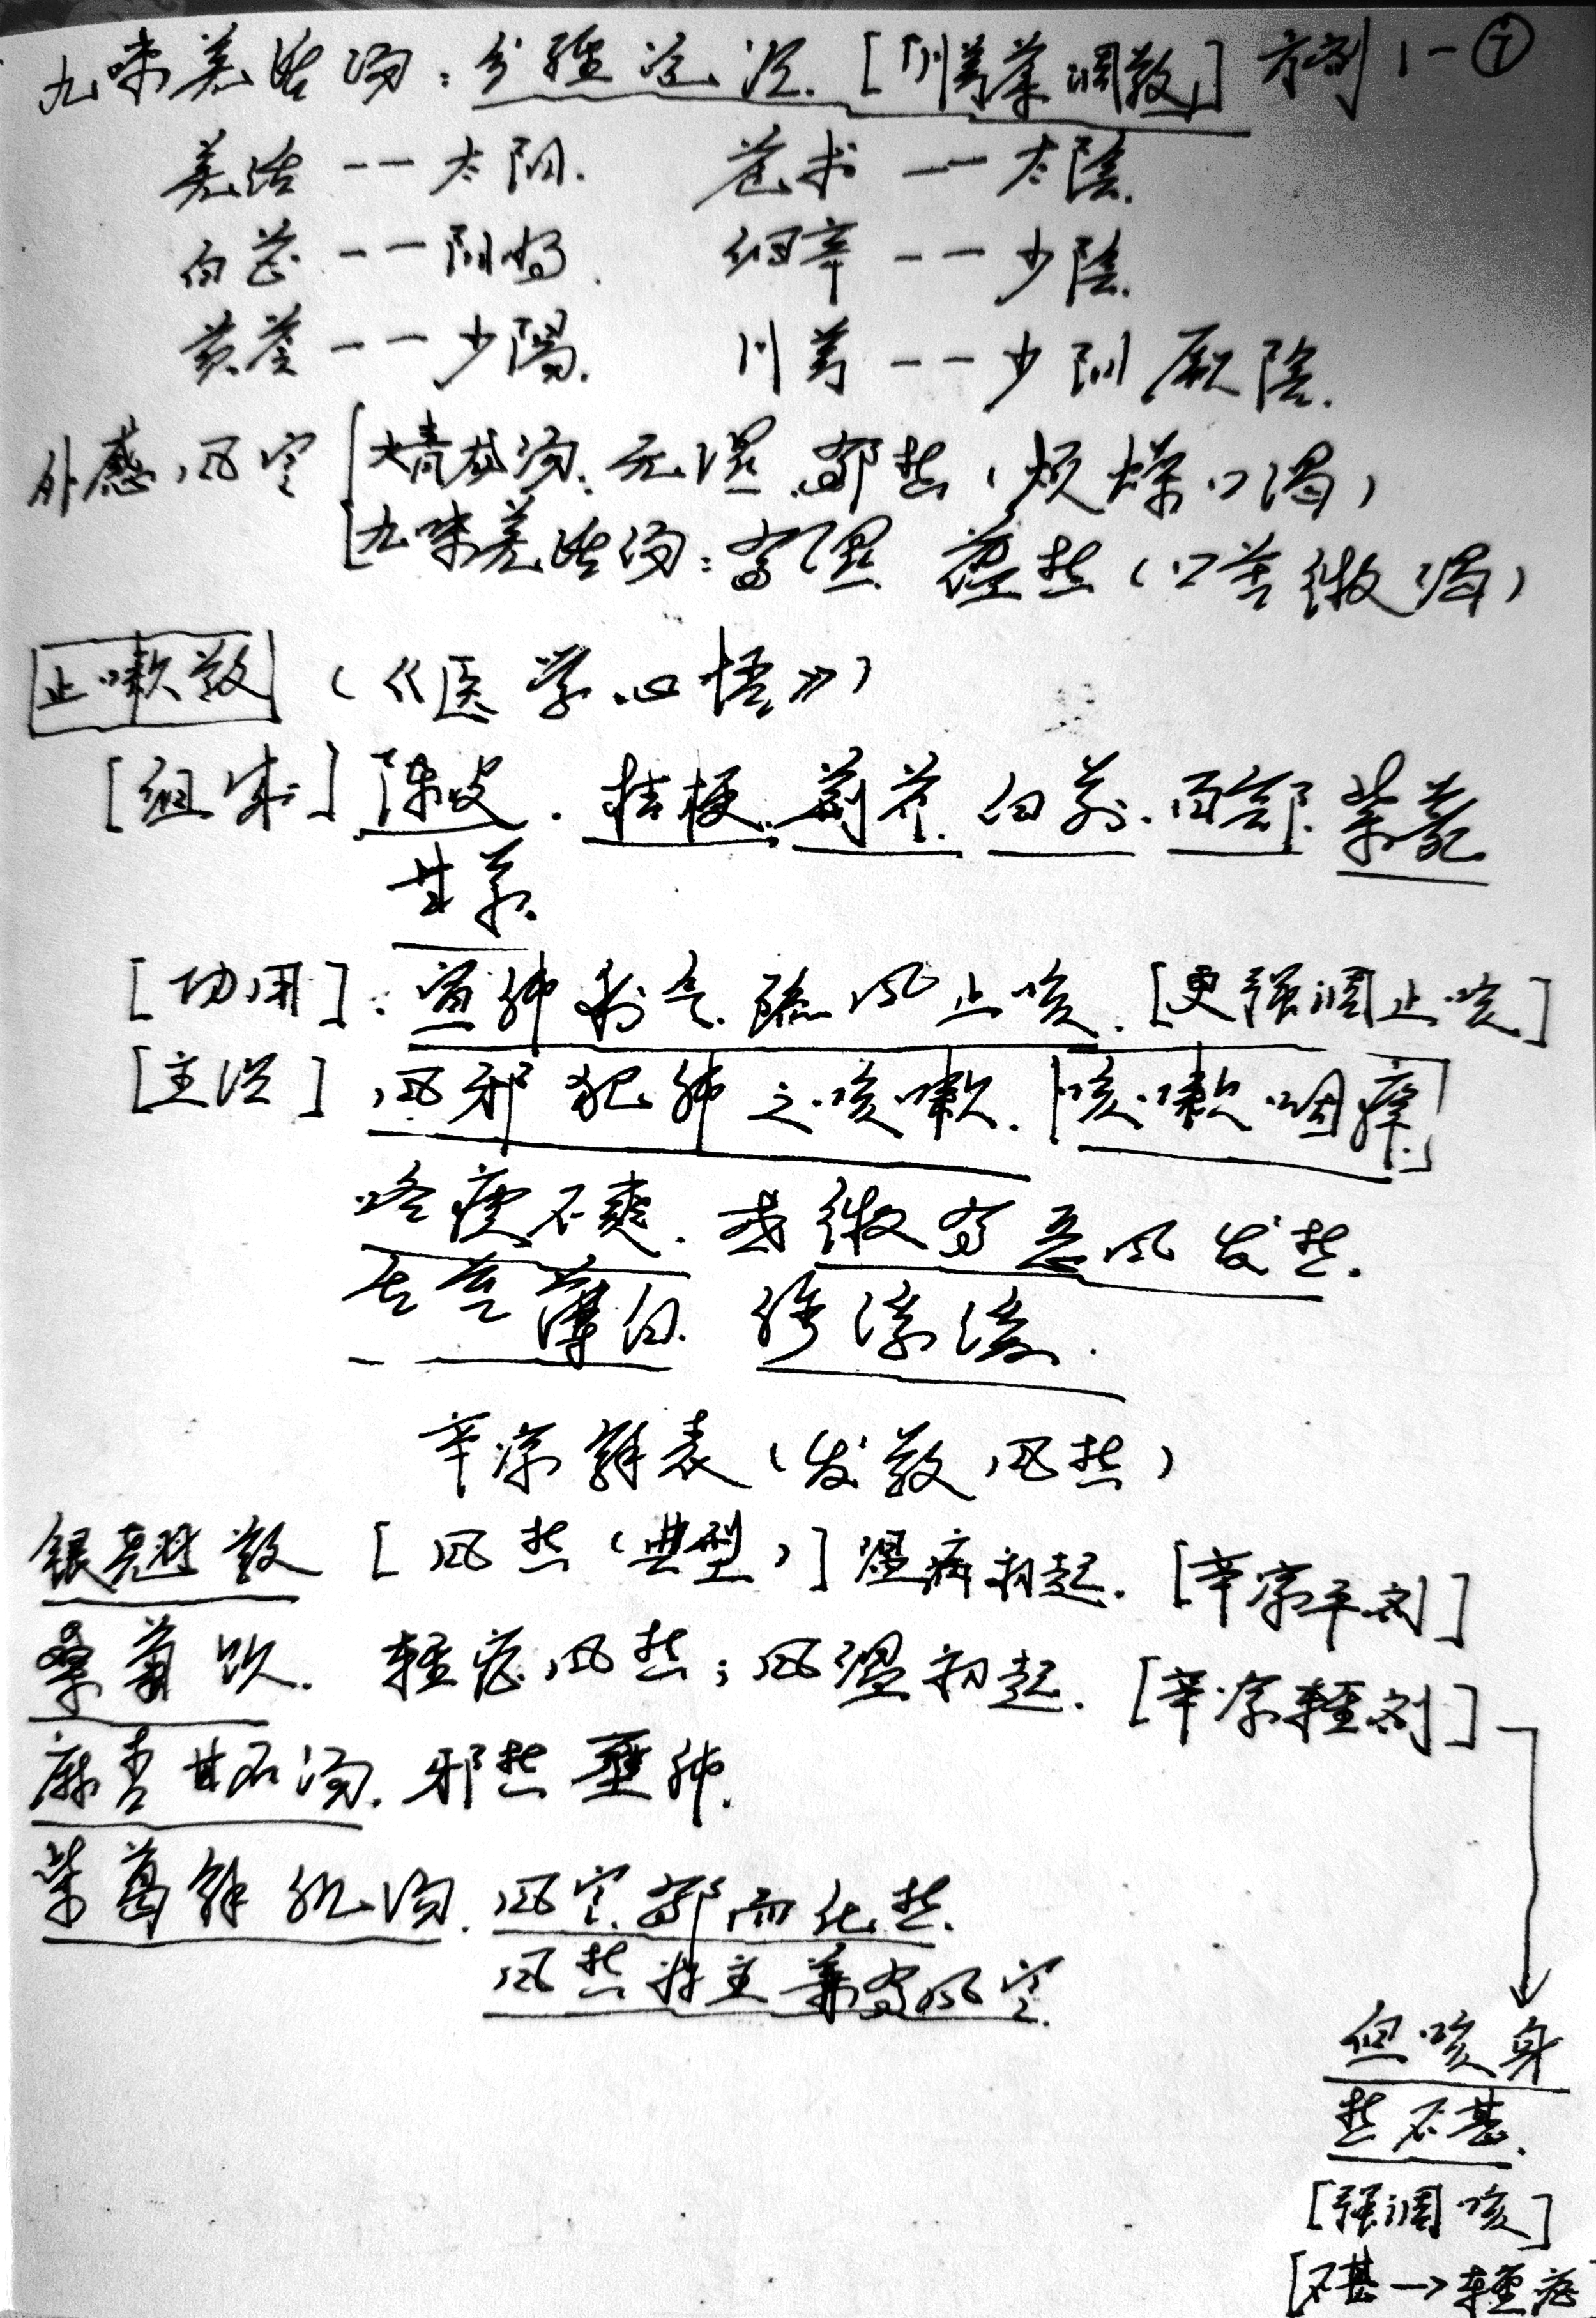 九味羌活汤：分經论治.［「川芎茶调散」］方剂1-⑦
羌活 -- 太阳. 苍术 -- 太陰.
白芷 -- 阳明. 细辛 -- 少陰.
黄芩 -- 少陽. 川芎 -- 少阳厥陰.
外感风寒
大青龙汤：无湿 郁热（烦燥口渴）
九味羌活汤：有湿 蕴热（口苦微渴）
止嗽散（《医学心悟》）
［组成］陈皮.桔梗.荆芥.白前.百部.紫菀
甘草.
［功用］：宣肺利气.疏风止咳.［更强调止咳］
［主治］风邪犯肺之咳嗽.「咳嗽咽痒」
咯痰不爽.或微有恶风发热.
舌苔薄白.脉浮缓.
辛凉解表（发散风热）
银翘散［风热（典型）］温病初起.［辛凉平剂］
桑菊饮.輕症风热；风温初起.［辛凉輕剂］
麻杏甘石汤.邪热壅肺.
柴葛解肌汤.风寒郁而化热.
风热为主兼有风寒.
但咳身
热不甚.
［强调咳］
［不甚→輕症